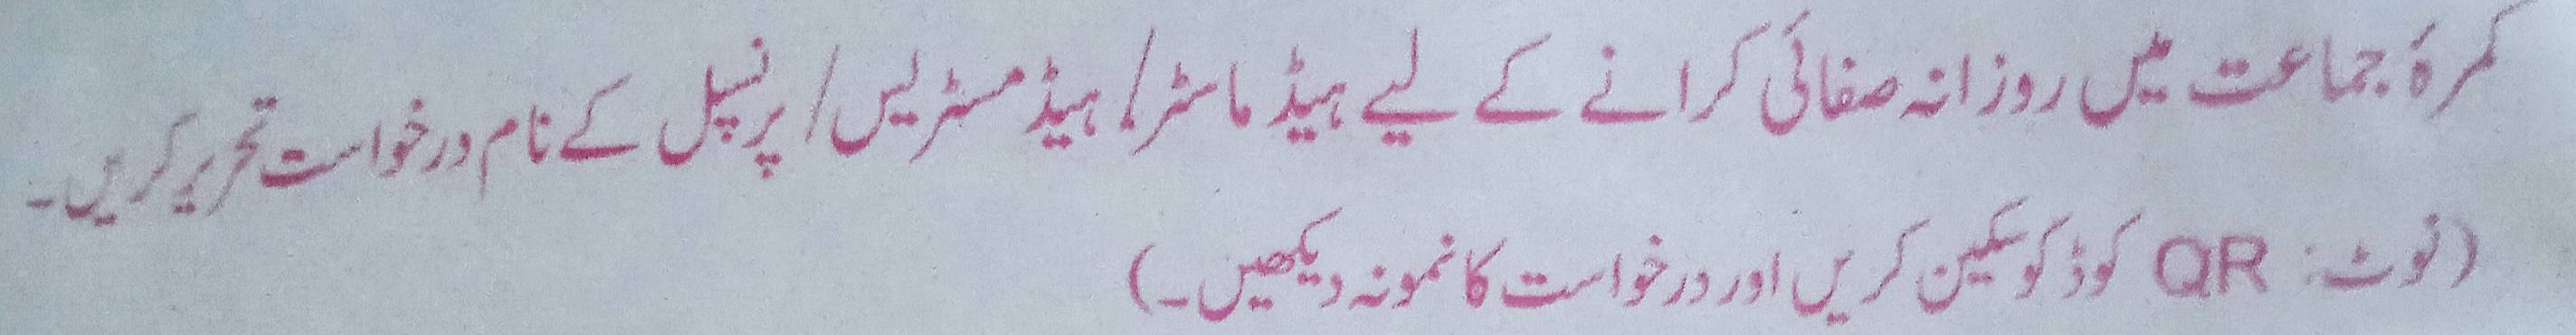 کمرۂ جماعت میں روزانہ صفائی کرانے کے لیے ہیڈ ماسٹر/ ہیڈ مسٹریس/ پرنسپل کے نام درخواست تحریر کریں۔
(نوٹ: QR کوڈ کو سکین کریں اور درخواست کا نمونہ دیکھیں۔)